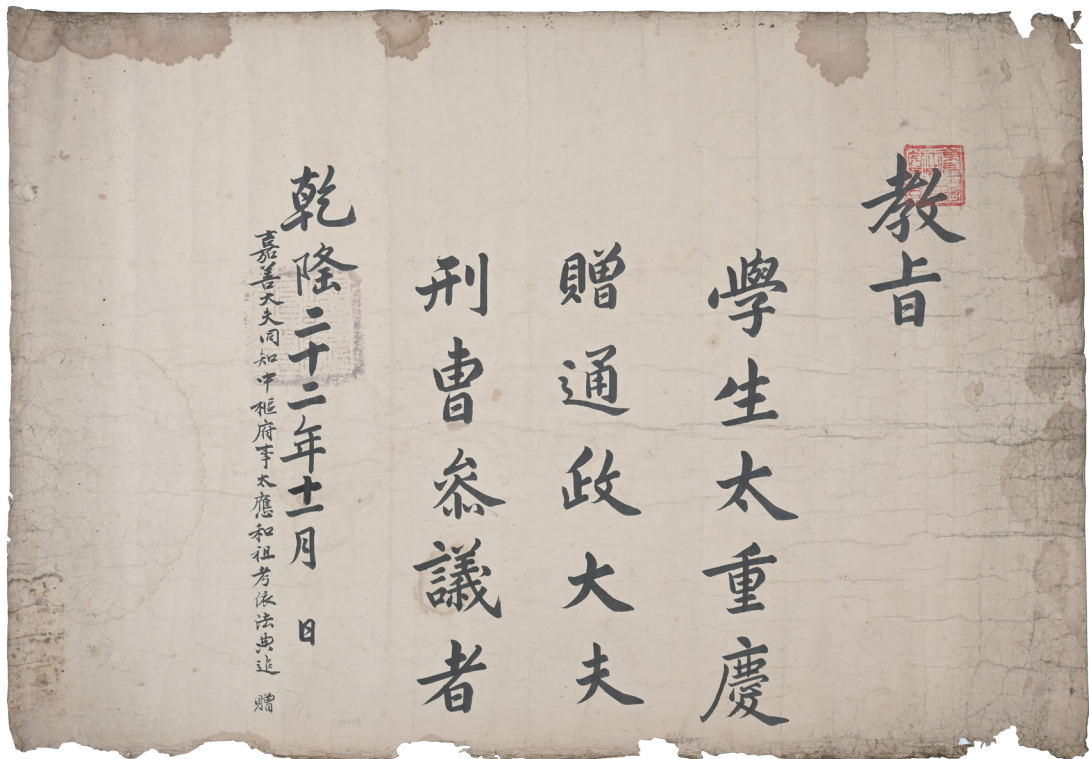 教旨
學生太重慶
贈通政大夫
刑曹叅議者
乾隆二十二年十二月 日
嘉善大夫同知中樞府事太應和祖考依法典追 贈